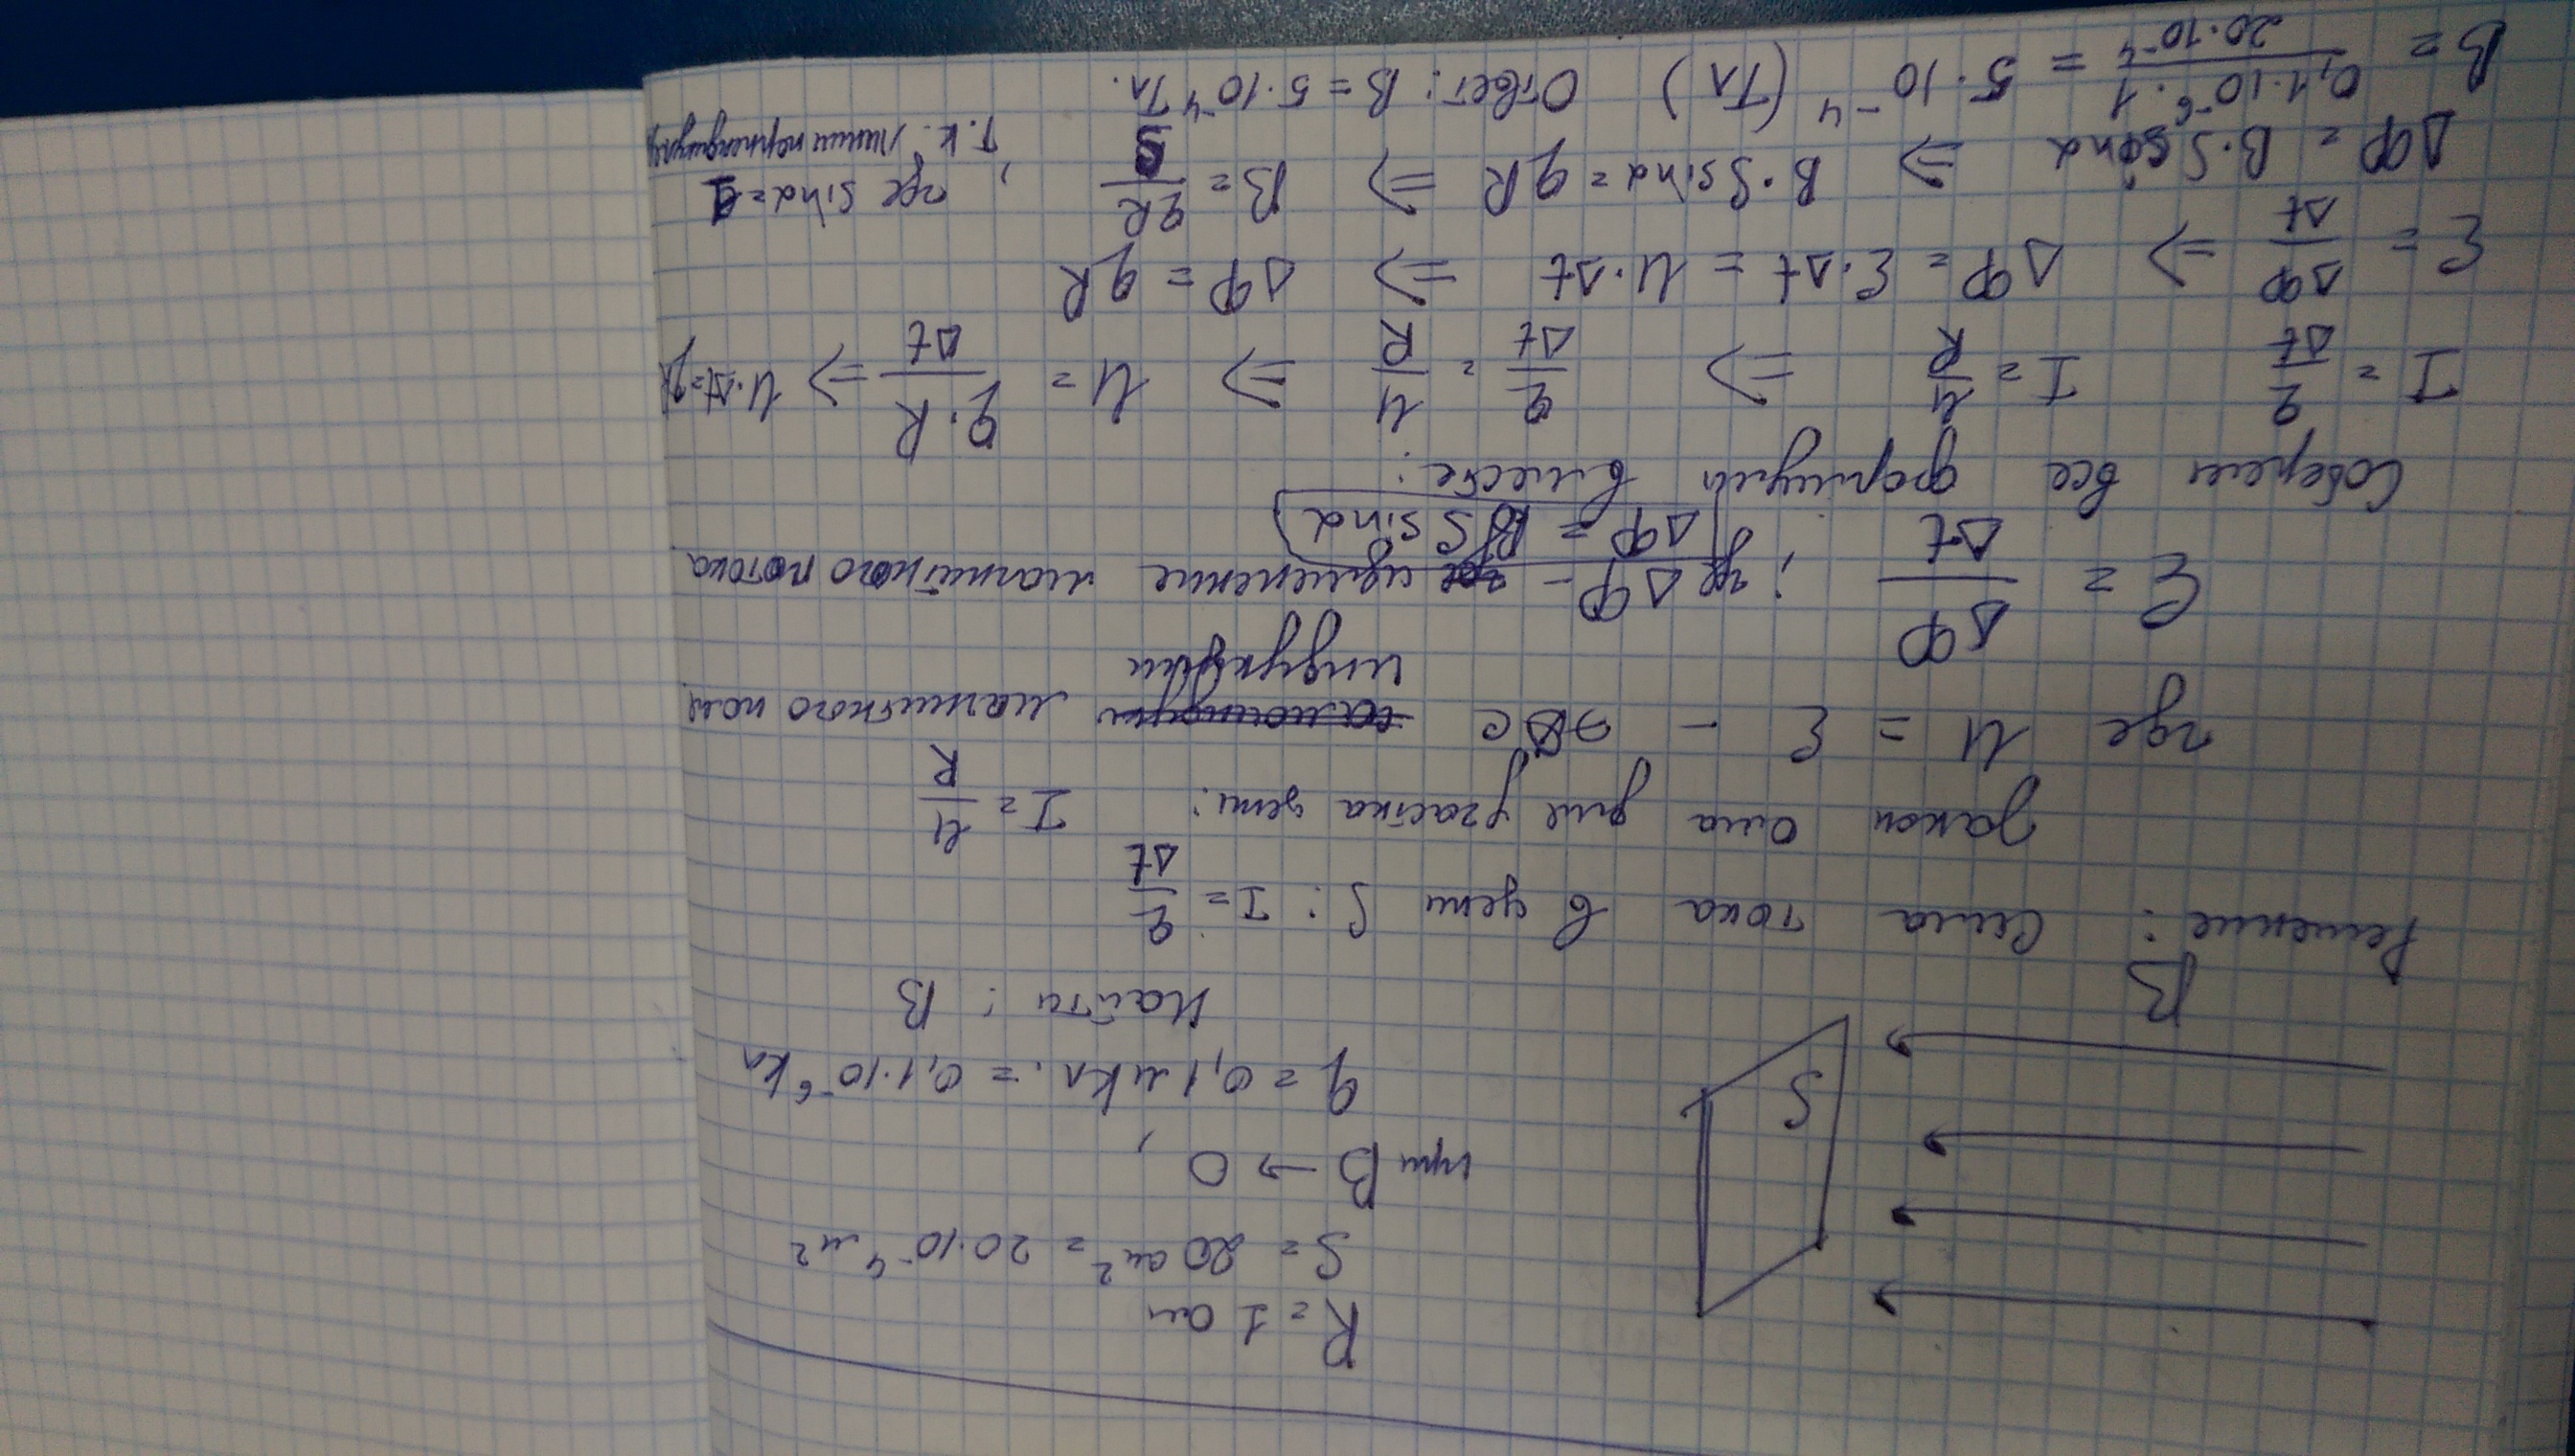 R = 1 ом
S = 20 см² = 20·10⁻⁴ м²
при B → 0,
q = 0,1 мкл. = 0,1·10⁻⁶ кл
S
Найти: B
B
Решение: Сила тока в цепи S: I = q/Δt
Закон ома для участка цепи: I = U/R
где U = ε - ЭДС магнитного поля
индукции
ε = Δφ/Δt ; где Δφ - изменение магнитного потока
Δφ = BS sinα
Соберем все формулы вместе:
I = q/Δt I = U/R ⇒ q/Δt = U/R ⇒ U = q·R/Δt ⇒ U·Δt = qR
ε = Δφ/Δt ⇒ Δφ = ε·Δt = U·Δt ⇒ Δφ = qR
Δφ = B·S sinα ⇒ B·S sinα = qR ⇒ B = qR/S ; где sinα = 1
т.к. линии
B = 0,1·10⁻⁶·1/20·10⁻⁴ = 5·10⁻⁴ (Тл) Ответ: B = 5·10⁻⁴ Тл.